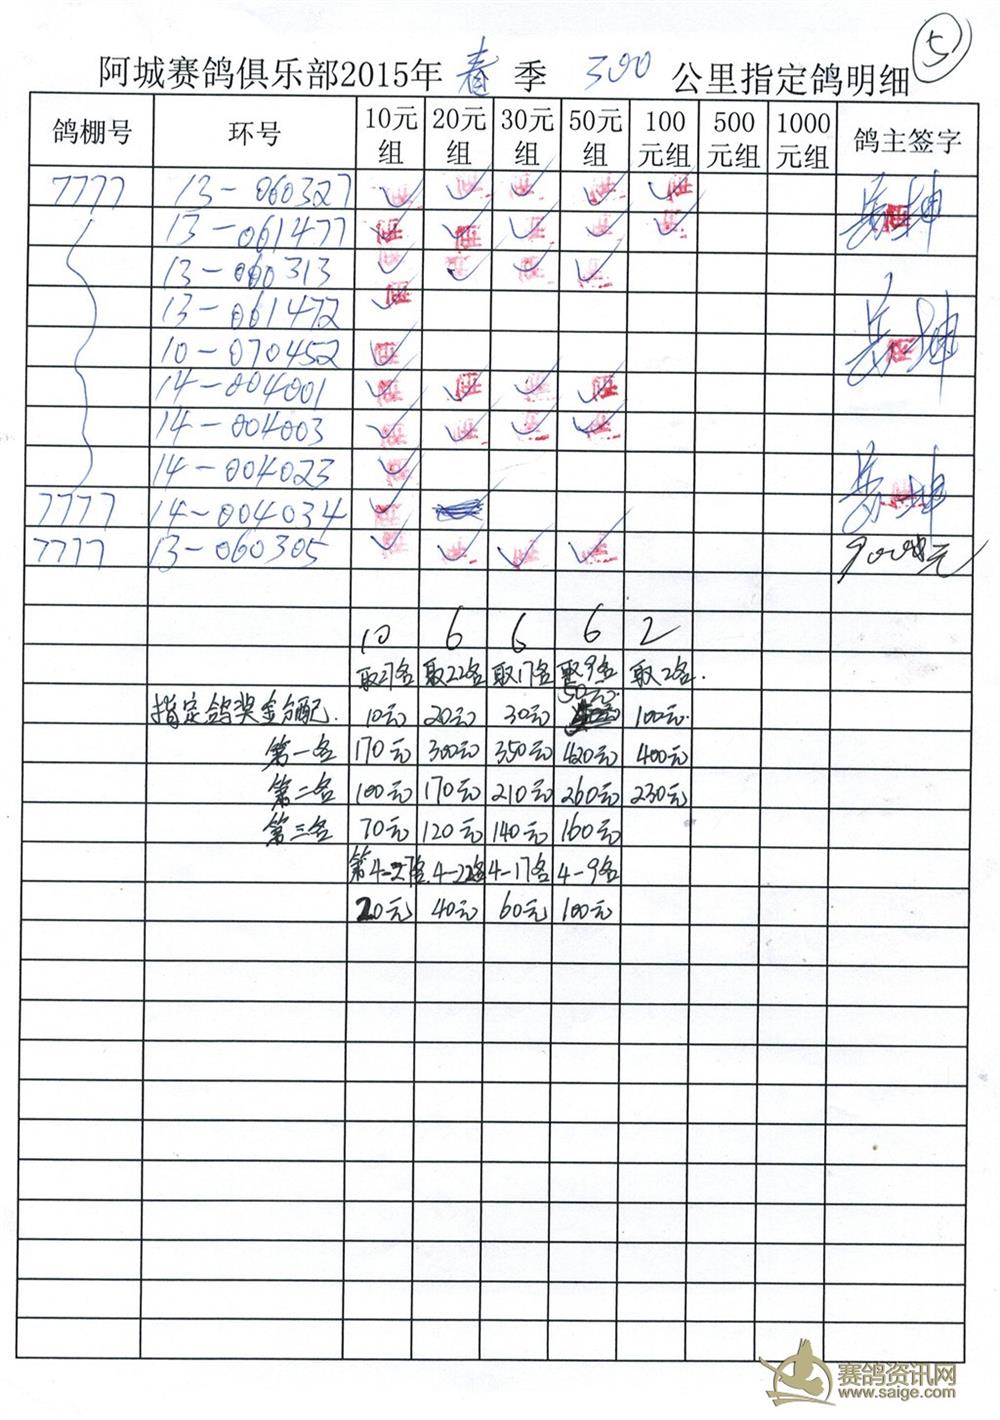 5
阿城赛鸽俱乐部2015年 春 季 300 公里指定鸽明细
鸽棚号 环号 10元组 20元组 30元组 50元组 100元组 500元组 1000元组 鸽主签字
7777 13-060327
13-061477
13-060313
13-061472
10-070452
14-004001
14-004003
14-004023
7777 14-004034
7777 13-060305
10 6 6 6 2
取27名 取22名 取17名 取9名 取2名.
指定鸽奖金分配. 10元 20元 30元 50元. 100元.
第一名 170元 300元 350元 420元 400元
第二名 100元 170元 210元 260元 230元
第三名 70元 120元 140元 160元
第4-27名. 4-22名 4-17名 4-9名
20元 40元 60元 100元
赛鸽资讯网
www.saige.com